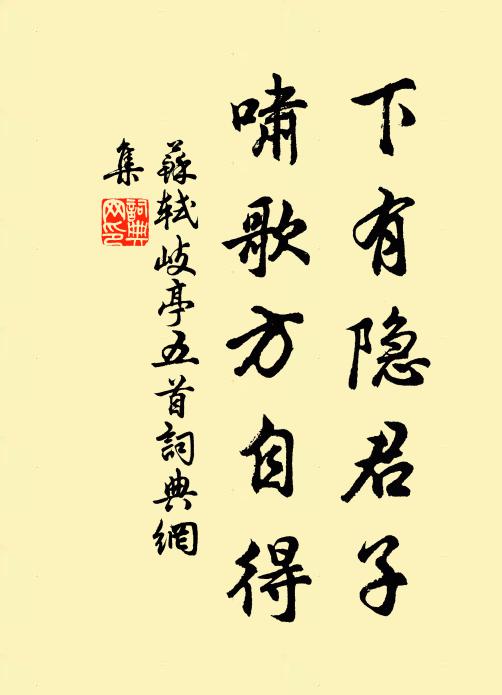 下有隐君子
啸歌方自得
蘇軾岐亭五首詞典網
集
詞典
网印